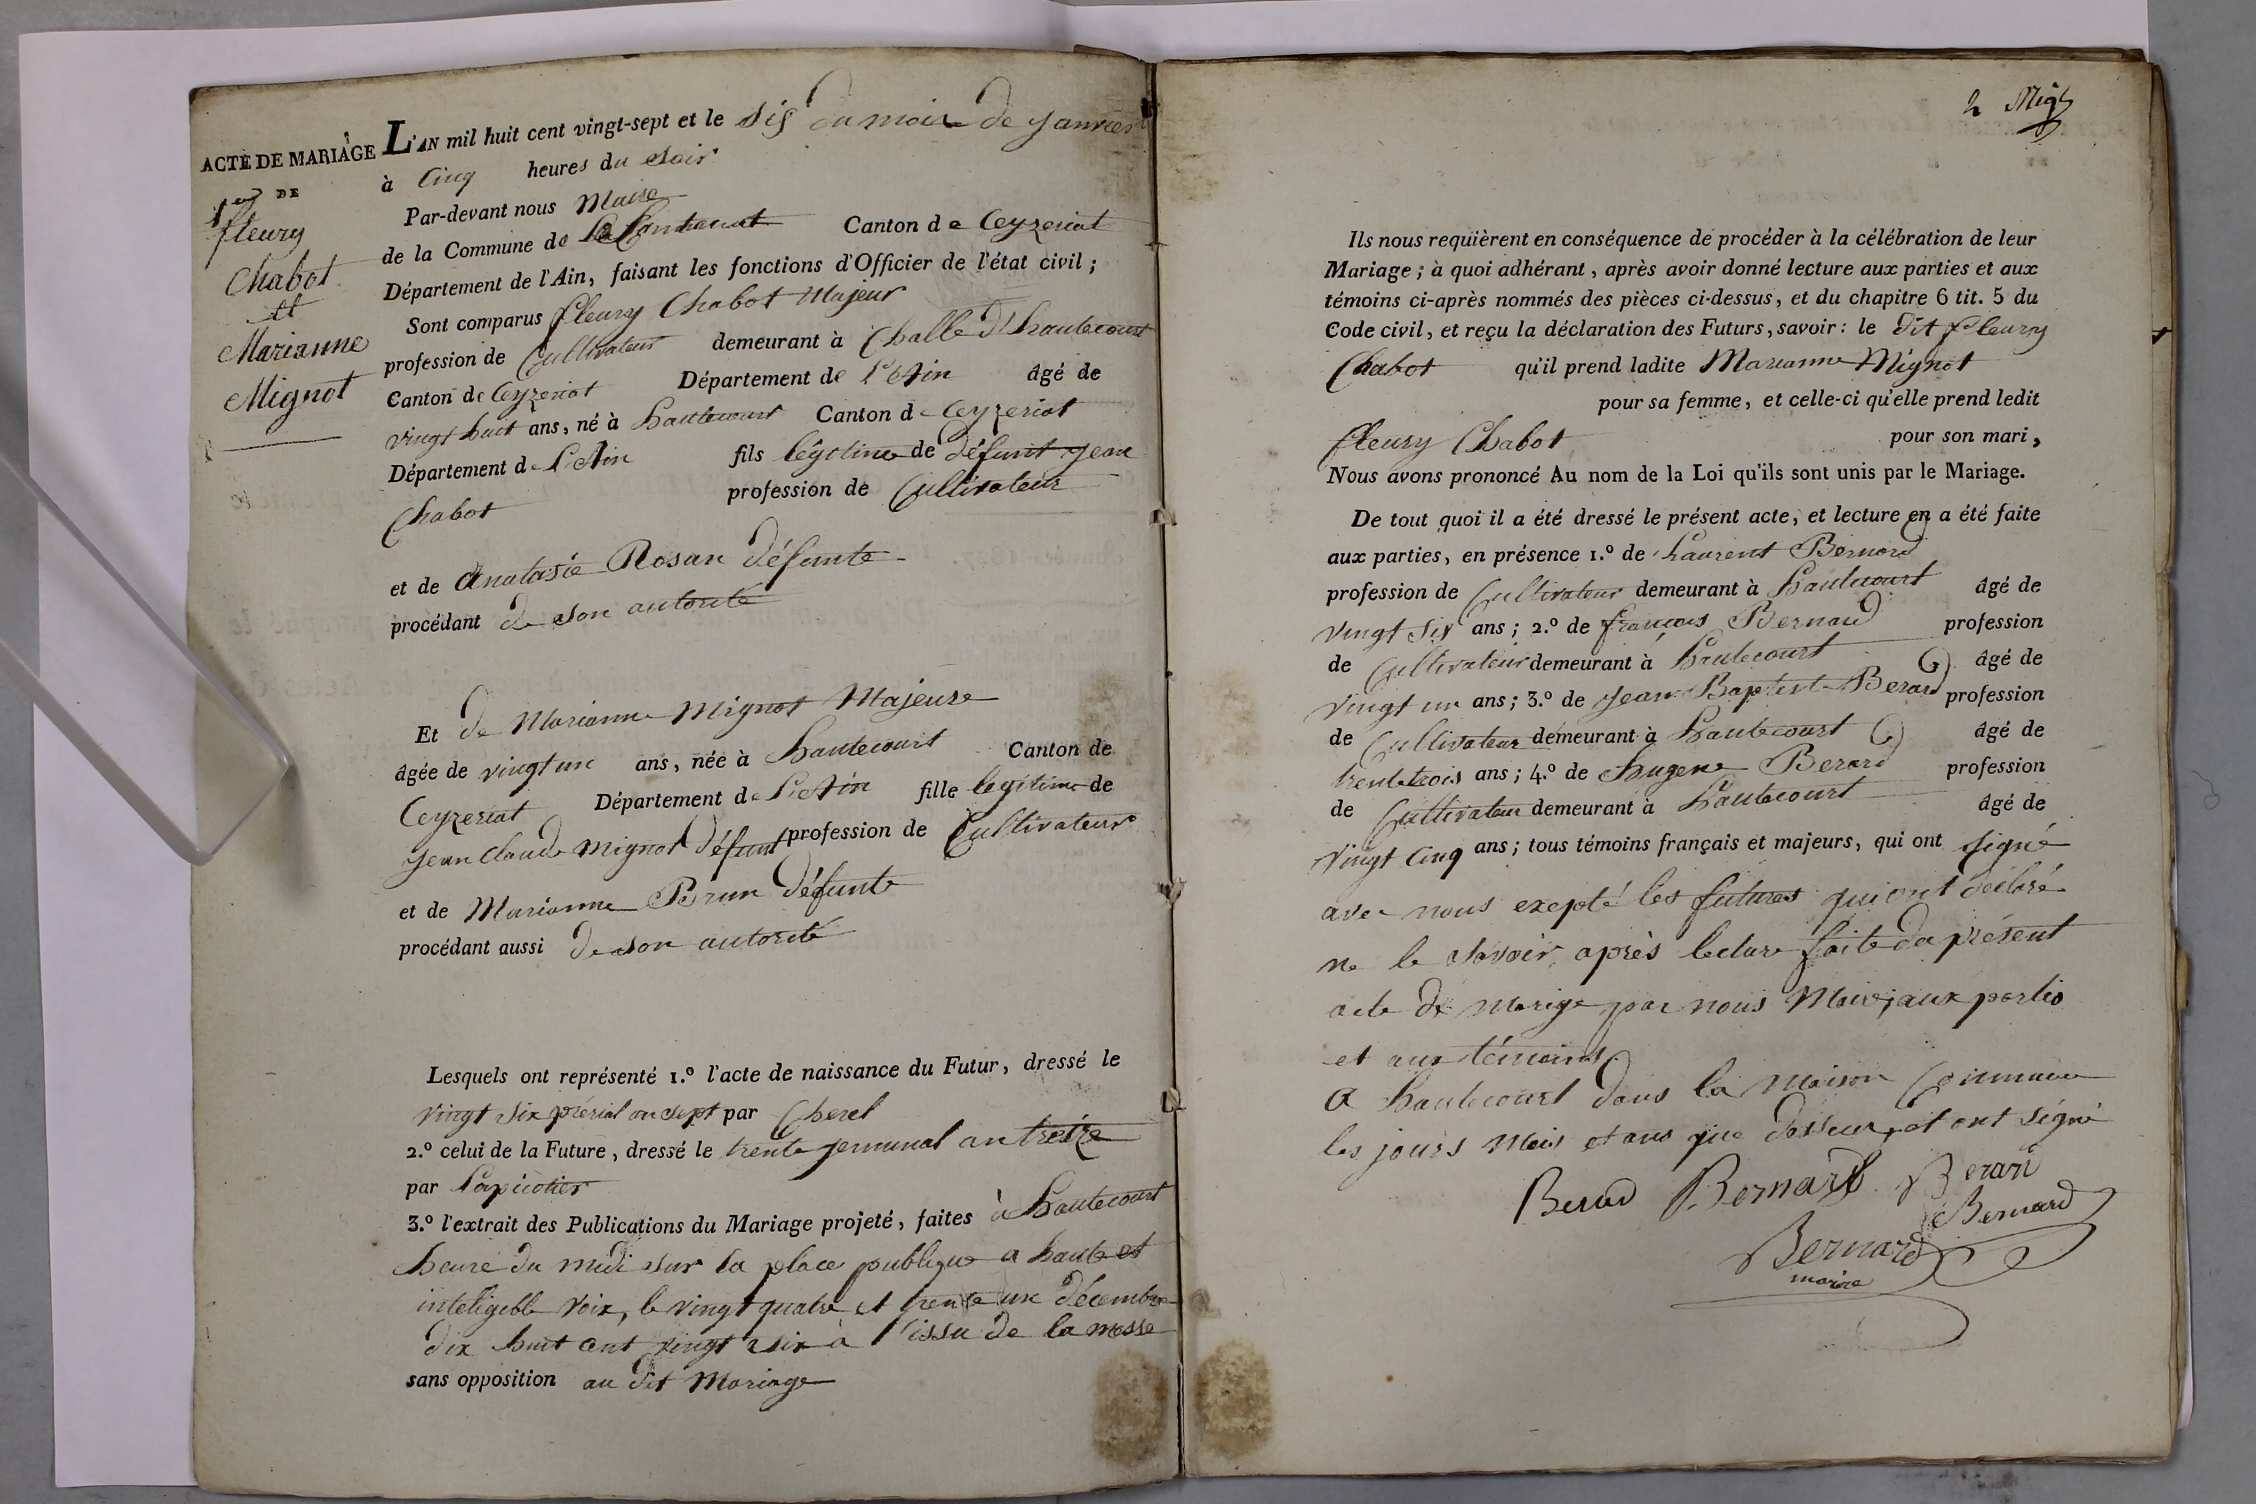 ACTE DE MARIAGE
DE
1er
fleury
Chabot
et
Marianne
Mignot
L'AN mil huit cent vingt-sept et le six du mois de janvier
à Cinq heures du soir
Par-devant nous Maire
de la Commune de Canton de Ceyzeriat
Département de l'Ain, faisant les fonctions d'Officier de l'état civil;
Sont comparus fleury Chabot Majeur
profession de Cultivateur demeurant à Challe d'hautecourt
Canton de Ceyzeriat Département de l'Ain âgé de
vingt huit ans, né à hautecourt Canton de Ceyzeriat
Département de L'Ain fils légitime de défunt jean
Chabot profession de Cultivateur
et de Anatasie Rosan défunte
procédant de son autorité
Et de Marianne Mignot Majeure
âgée de vingt un ans, née à hautecourt Canton de
Ceyzeriat Département de L'Ain fille legitime de
jean Claude Mignot défunt profession de Cultivateur
et de Marianne Brun défunte
procédant aussi de son autorité
Lesquels ont représenté 1.º l'acte de naissance du Futur, dressé le
vingt six prérial an sept par Cherel
2.º celui de la Future, dressé le trente germinal an treize
par
3.º l'extrait des Publications du Mariage projeté, faites à hautecourt
heure du midi sur la place publique a haute et
inteligeble voix, le vingt quatre et trente un décembre
dix huit cent vingt six à l'issu de la messe
sans opposition au dit Mariage
2 Migt
Ils nous requièrent en conséquence de procéder à la célébration de leur
Mariage; à quoi adhérant, après avoir donné lecture aux parties et aux
témoins ci-après nommés des pièces ci-dessus, et du chapitre 6 tit. 5 du
Code civil, et reçu la déclaration des Futurs, savoir: le dit fleury
Chabot qu'il prend ladite Marianne Mignot
pour sa femme, et celle-ci qu'elle prend ledit
fleury Chabot pour son mari,
Nous avons prononcé Au nom de la Loi qu'ils sont unis par le Mariage.
De tout quoi il a été dressé le présent acte, et lecture en a été faite
aux parties, en présence 1.º de Laurent Bernard
profession de Cultivateur demeurant à hautecourt âgé de
vingt six ans; 2.º de françois Bernard profession
de Cultivateur demeurant à hautecourt âgé de
vingt un ans; 3.º de jean Baptiste Berard profession
de Cultivateur demeurant à hautecourt âgé de
trente trois ans; 4.º de hugene Berard profession
de Cultivateur demeurant à hautecourt âgé de
vingt Cinq ans; tous témoins français et majeurs, qui ont signé
avec nous exepté les futures qui ont déclaré
ne le savoir, après lecture faite du présent
acte de marige par nous Maire, aux partis
et aux témoins
a hautecourt dans la maison Commune
les jours mois et ans que dessus, et ont signé
Berard Bernard Berard
Bernard
Bernard
maire